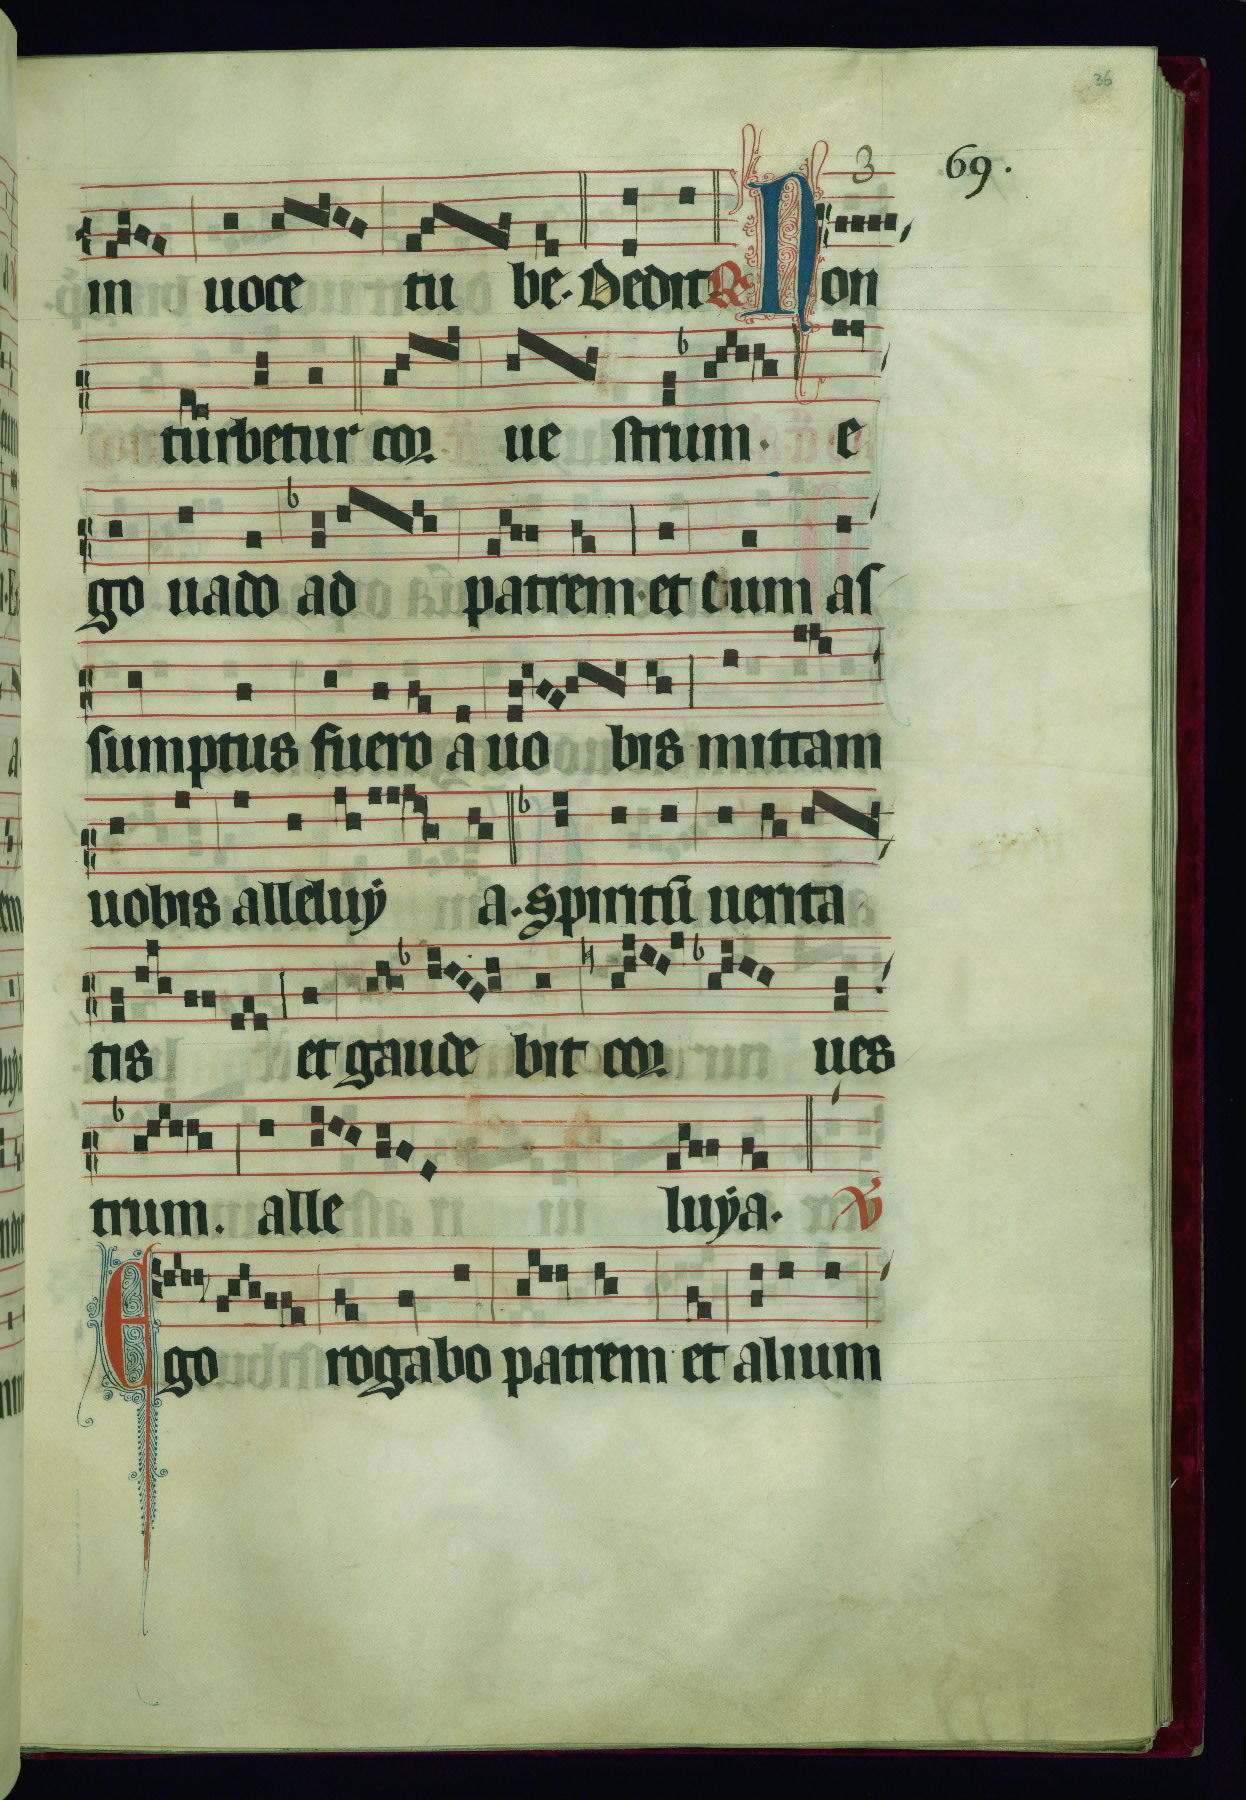 36
3 69.
in uoce tu be. Dedit R. Non
turbetur cor ue strum. e
go uado ad patrem. et dum as
sumptus fuero a uo bis mittam
uobis alleluÿ a. Spiritū uerita
tis et gaude bit cor ues
trum. alle luÿa. V
Ego rogabo patrem et alium